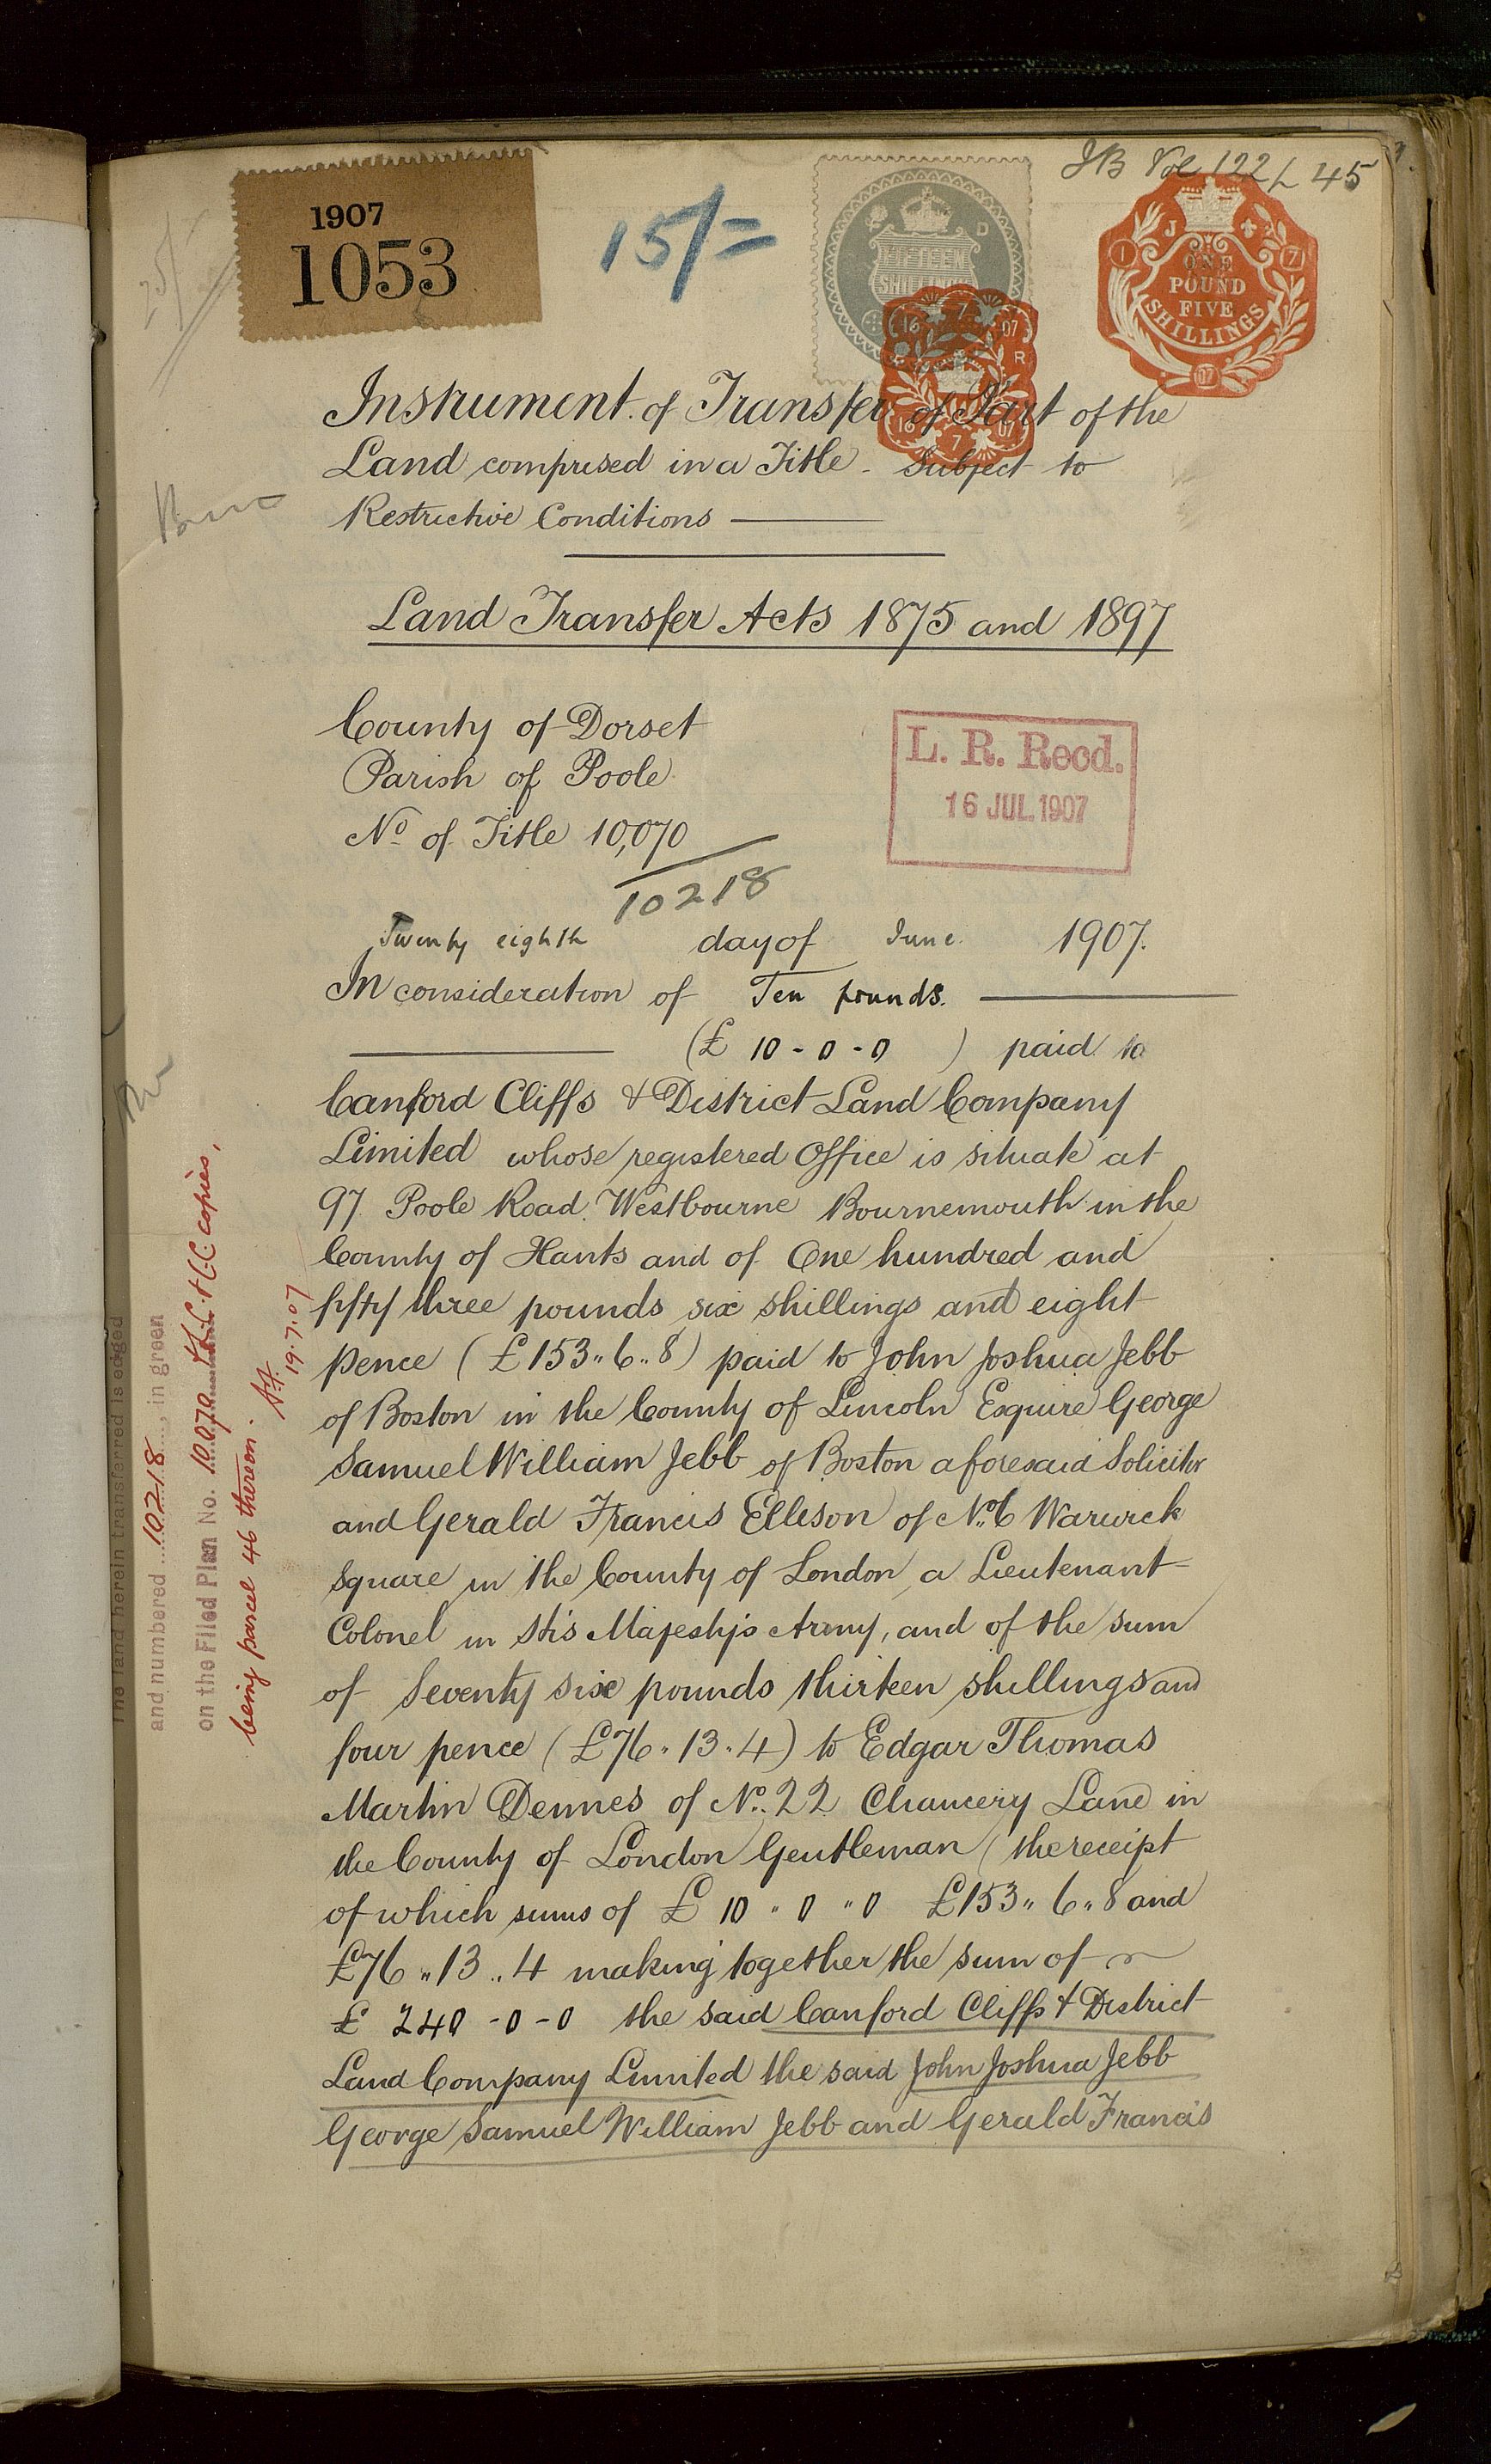 JB Vol 122 L 45
1907
1053
15/=
FIFTEEN
SHILLINGS
16 7 07
R
16 7 07
J
1 7
ONE
POUND
FIVE
SHILLINGS
07
Instrument of Transfer of Part of the
Land comprised in a Title - Subject to
Restrictive Conditions
Land Transfer Acts 1875 and 1897
County of Dorset
Parish of Poole
No. of Title 10,070
10218
L. R. Recd.
16 JUL. 1907
Twenty eighth day of June 1907.
In consideration of Ten pounds.
(£ 10 - 0 - 0 ) paid to
Canford Cliffs & District Land Company
Limited whose registered Office is situate at
97 Poole Road Westbourne Bournemouth in the
County of Hants and of One hundred and
fifty three pounds six shillings and eight
pence (£153.,6.,8) paid to John Joshua Jebb
of Boston in the County of Lincoln Esquire George
Samuel William Jebb of Boston aforesaid Solicitor
and Gerald Francis Ellison of No. 6 Warwick
Square in the County of London a Lieutenant
Colonel in His Majesty's Army, and of the sum
of Seventy six pounds thirteen shillings and
four pence (£76.,13.,4) to Edgar Thomas
Martin Dennes of No. 22 Chancery Lane in
the County of London Gentleman (the receipt
of which sums of £ 10 " 0 " 0 £153.,6.,8 and
£76.,13.,4 making together the sum of
£ 240 - 0 - 0 the said Canford Cliffs & District
Land Company Limited the said John Joshua Jebb
George Samuel William Jebb and Gerald Francis
The land herein transferred is edged
and numbered 10218, in green
on the Filed Plan No. 10,070 & C.C. copies,
being parcel 46 thereon.
19.7.07